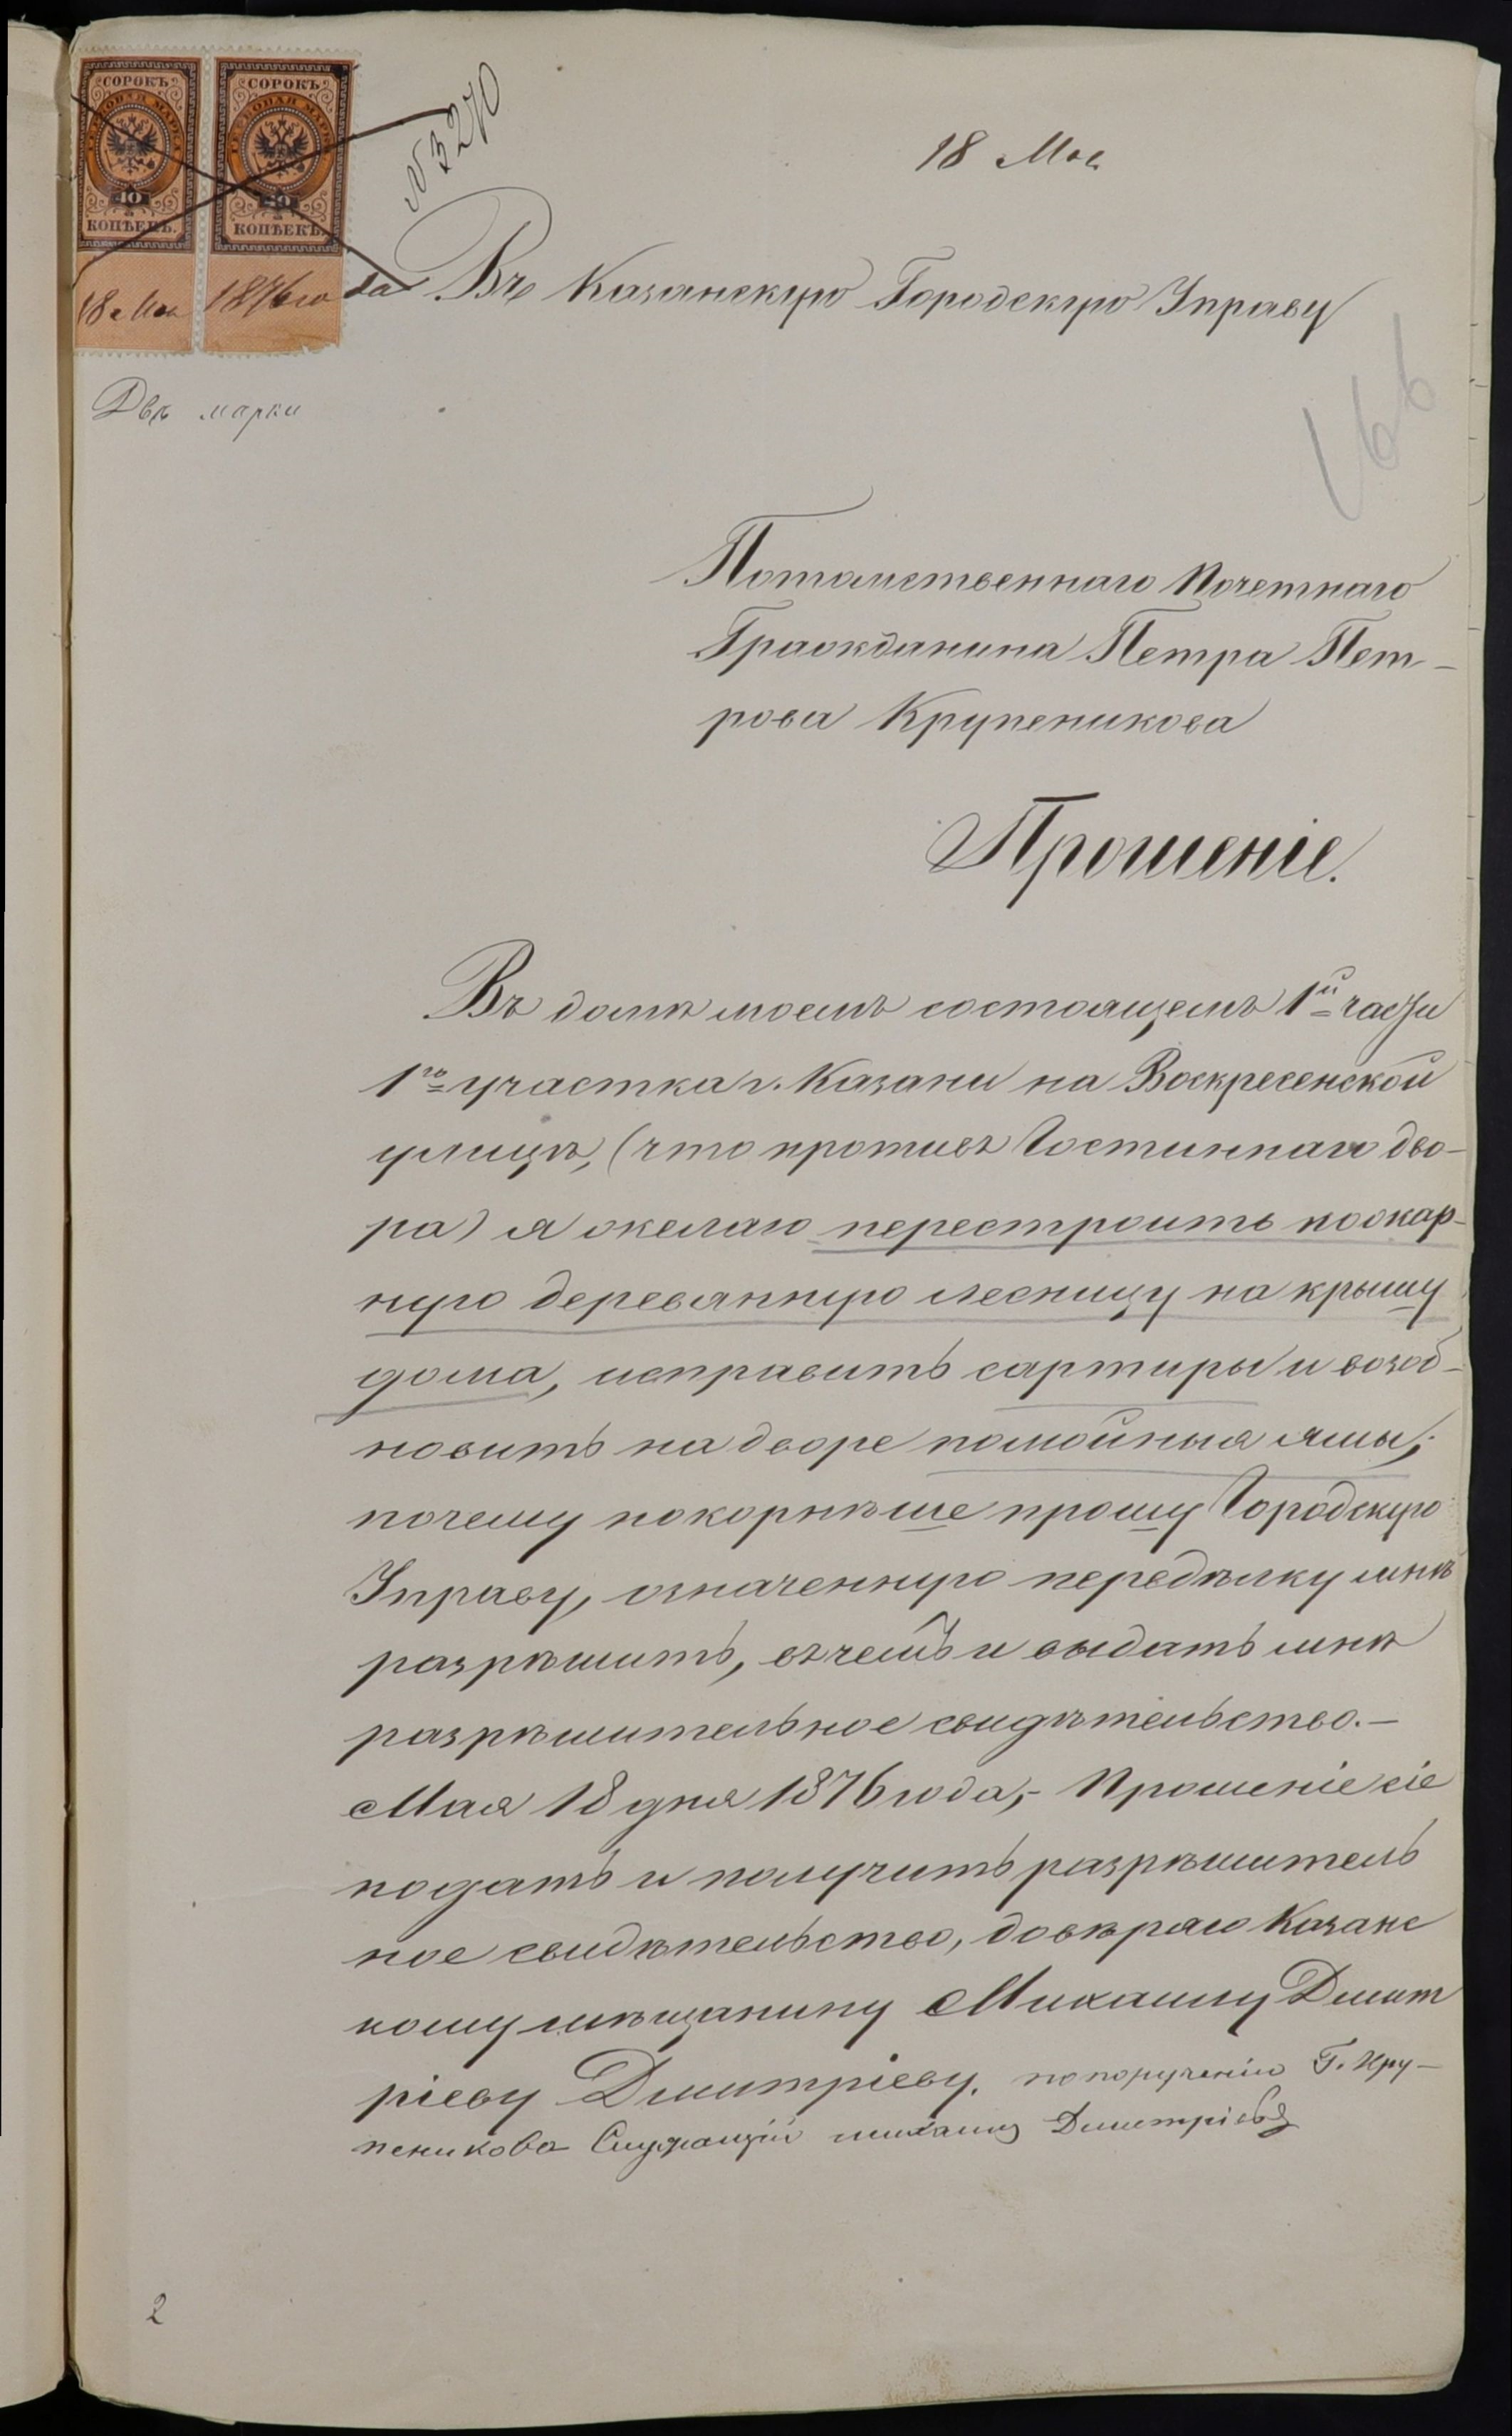 СОРОКЪ СОРОКЪ
ГЕРБОВАЯ МАРКА ГЕРБОВАЯ МАРКА
40 40
КОПѢЕКЪ. КОПѢЕКЪ.
18 Мая 1876 года
№ 3270
18 Мая
Въ Казанскую Городскую Управу
Двѣ марки
66
Потомственнаго Почетнаго
Гражданина Петра Пет-
рова Крупеникова
Прошеніе.
Въ домѣ моемъ состоящемъ 1й части
1го участка г. Казани на Воскресенской
улицѣ, (что противъ Гостиннаго дво-
ра) я желаю перестроить пожар-
ную деревянную лесницу на крышу
дома, исправить сартиры и возоб-
новить на дворе помойныя ямы;
почему покорнѣше прошу Городскую
Управу, означенную передѣлку мнѣ
разрѣшить, въ чемъ и выдать мнѣ
разрѣшительное свидѣтельство.—
Мая 18 дня 1876 года,- Прошеніе сіе
подать и получить разрѣшитель
ное свидѣтельство, довѣряю Казанс
кому мѣщанину Михаилу Дмит
ріеву Дмитріеву. по порученію Г. Кру-
пеникова Служащій михаилъ Дмитріевъ
2